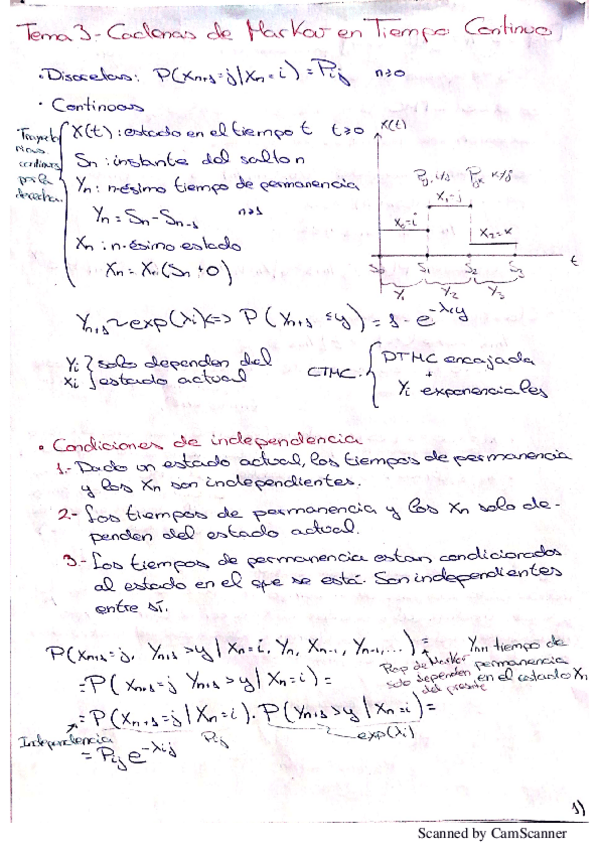 Tema 3 - Cadenas de Markov en Tiempo Continuo
• Discretas: P(Xn+1=j|Xn=i) = Pij n≥0
• Continuas
Trayectorias continuas por la derecha.
X(t): estado en el tiempo t t≥0
Sn: instante del salto n
Yn: n-ésimo tiempo de permanencia
Yn = Sn - Sn-1 n≥1
Xn: n-ésimo estado
Xn = Xn(Sn+0)
X(t)
X0=i
X1=j
X2=k
S0 S1 S2 S3 t
Y1 Y2 Y3
Yn+1 ~ exp(λi) <=> P(Yn+1 ≤ y) = 1 - e^-λiy
Yi
Xi
} solo dependen del
estado actual
CTMC. { DTMC encajada
+
Yi exponenciales
• Condiciones de independencia
1.- Dado un estado actual, los tiempos de permanencia
y los Xn son independientes.
2.- Los tiempos de permanencia y los Xn solo de-
penden del estado actual.
3.- Los tiempos de permanencia estan condicionados
al estado en el que se está. Son independientes
entre sí.
P(Xn+1=j, Yn+1>y|Xn=i, Yn, Xn-1, Yn-1, ...) =
Prop de Markov
solo dependen
del presente
Yn+1 tiempo de
permanencia
en el estado Xn
= P(Xn+1=j Yn+1>y|Xn=i) =
= P(Xn+1=j|Xn=i) · P(Yn+1>y|Xn=i) =
Independencia
Pij
exp(λi)
= Pij e^-λij
1)
Scanned by CamScanner